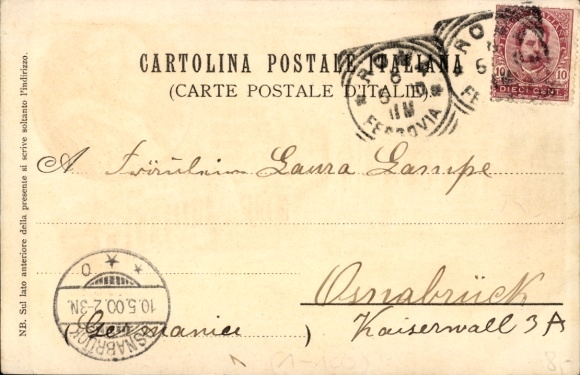 CARTOLINA POSTALE ITALIANA
(CARTE POSTALE D'ITALIE)
ROMA
FERROVIA
10 10
DIECI CENT
NB. Sul lato anteriore della presente si scrive soltanto l'indirizzo.
A Fräulein Laura Lampe
Osnabrück
Kaiserwall 3A
(Germania)
OSNABRÜCK
10.5.00.2-3N.
8,-